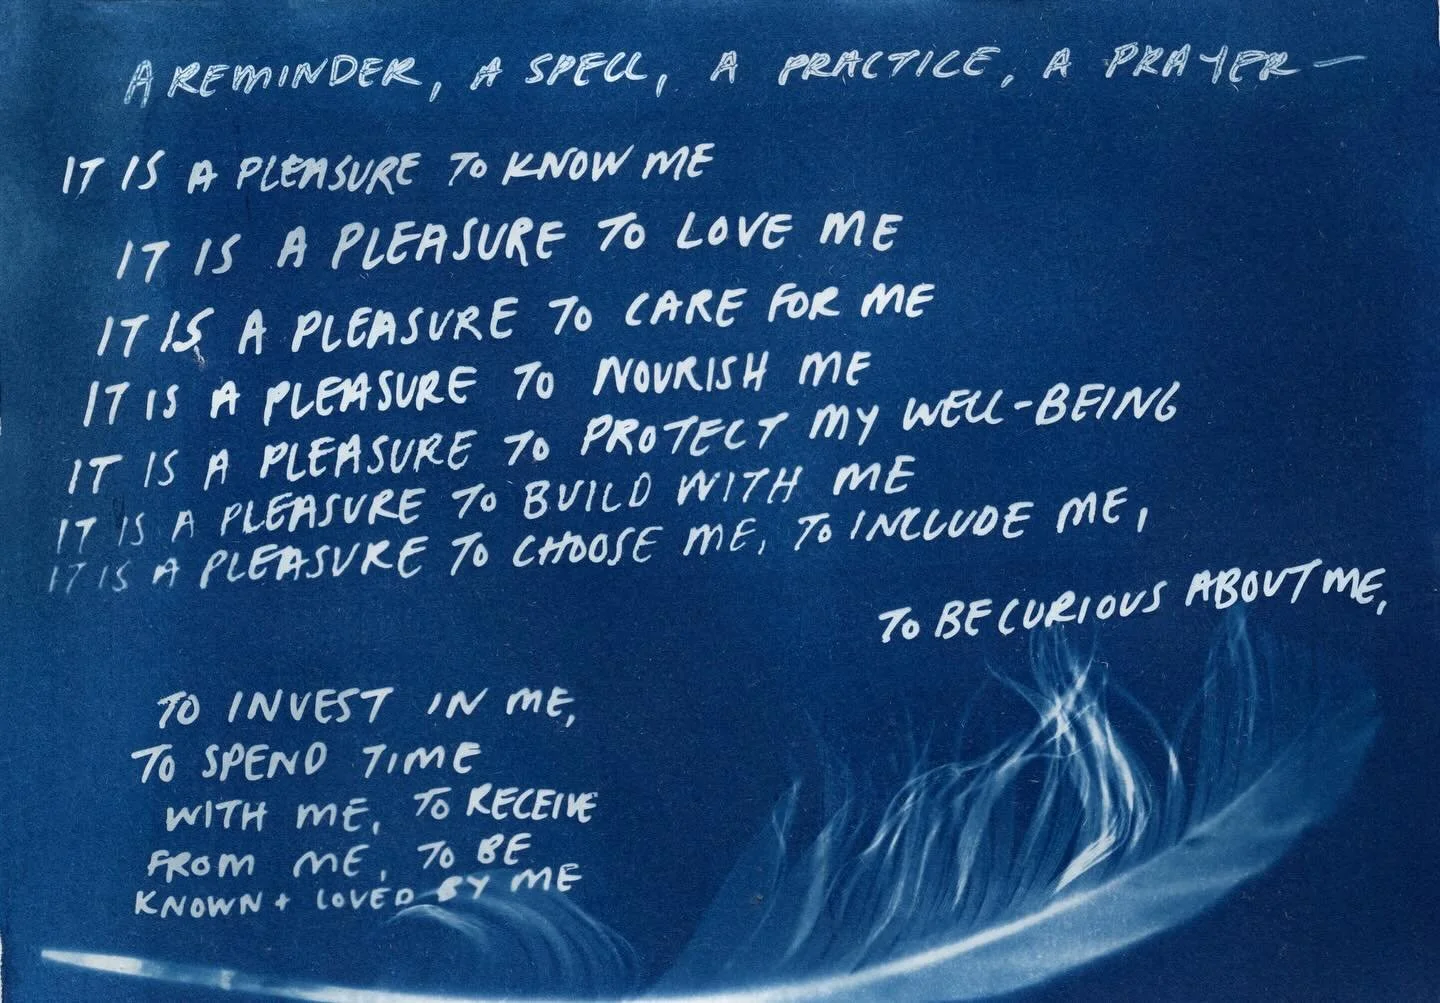 A REMINDER, A SPELL, A PRACTICE, A PRAYER—
IT IS A PLEASURE TO KNOW ME
IT IS A PLEASURE TO LOVE ME
IT IS A PLEASURE TO CARE FOR ME
IT IS A PLEASURE TO NOURISH ME
IT IS A PLEASURE TO PROTECT MY WELL-BEING
IT IS A PLEASURE TO BUILD WITH ME
IT IS A PLEASURE TO CHOOSE ME, TO INCLUDE ME,
TO BE CURIOUS ABOUT ME,
TO INVEST IN ME,
TO SPEND TIME
WITH ME, TO RECEIVE
FROM ME, TO BE
KNOWN + LOVED BY ME